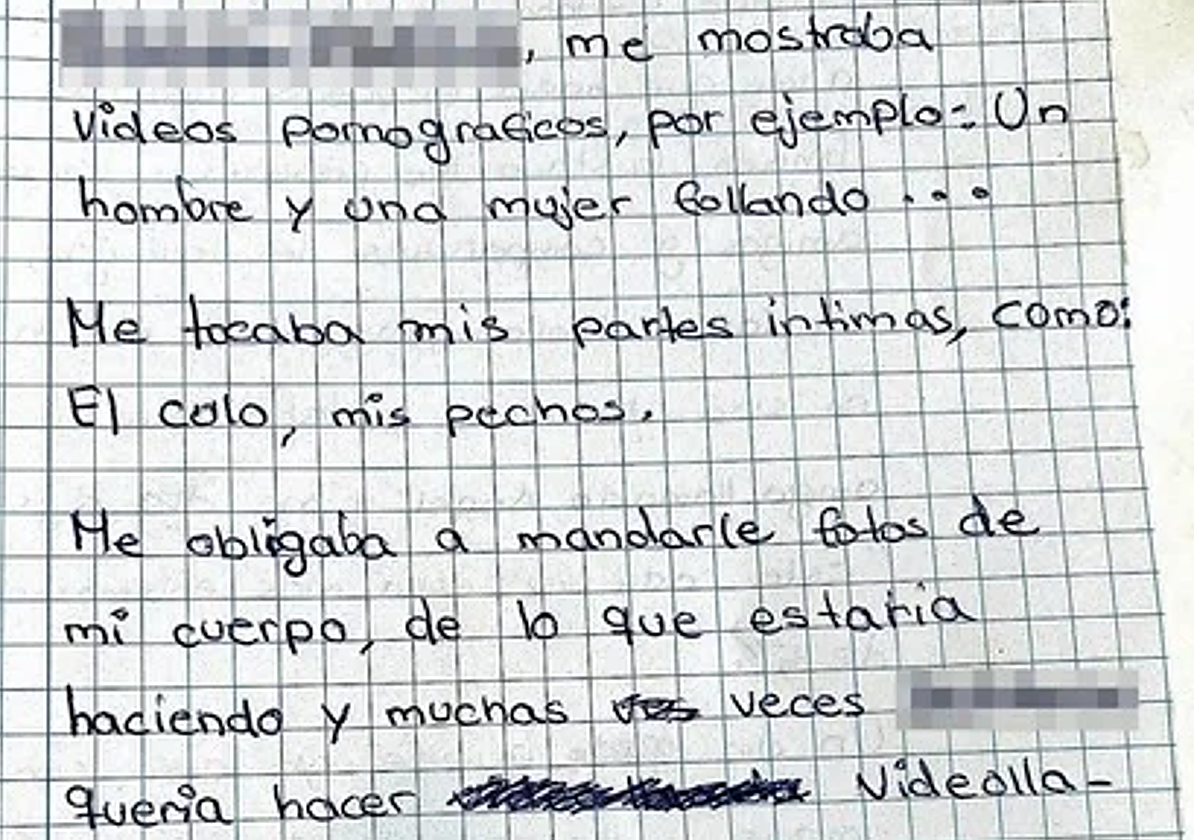 , me mostraba
videos pornograficos, por ejemplo: Un
hombre y una mujer follando ...
Me tocaba mis partes intimas, como:
El culo, mis pechos.
Me obligaba a mandarle fotos de
mi cuerpo, de lo que estaria
haciendo y muchas veces
queria hacer videolla-